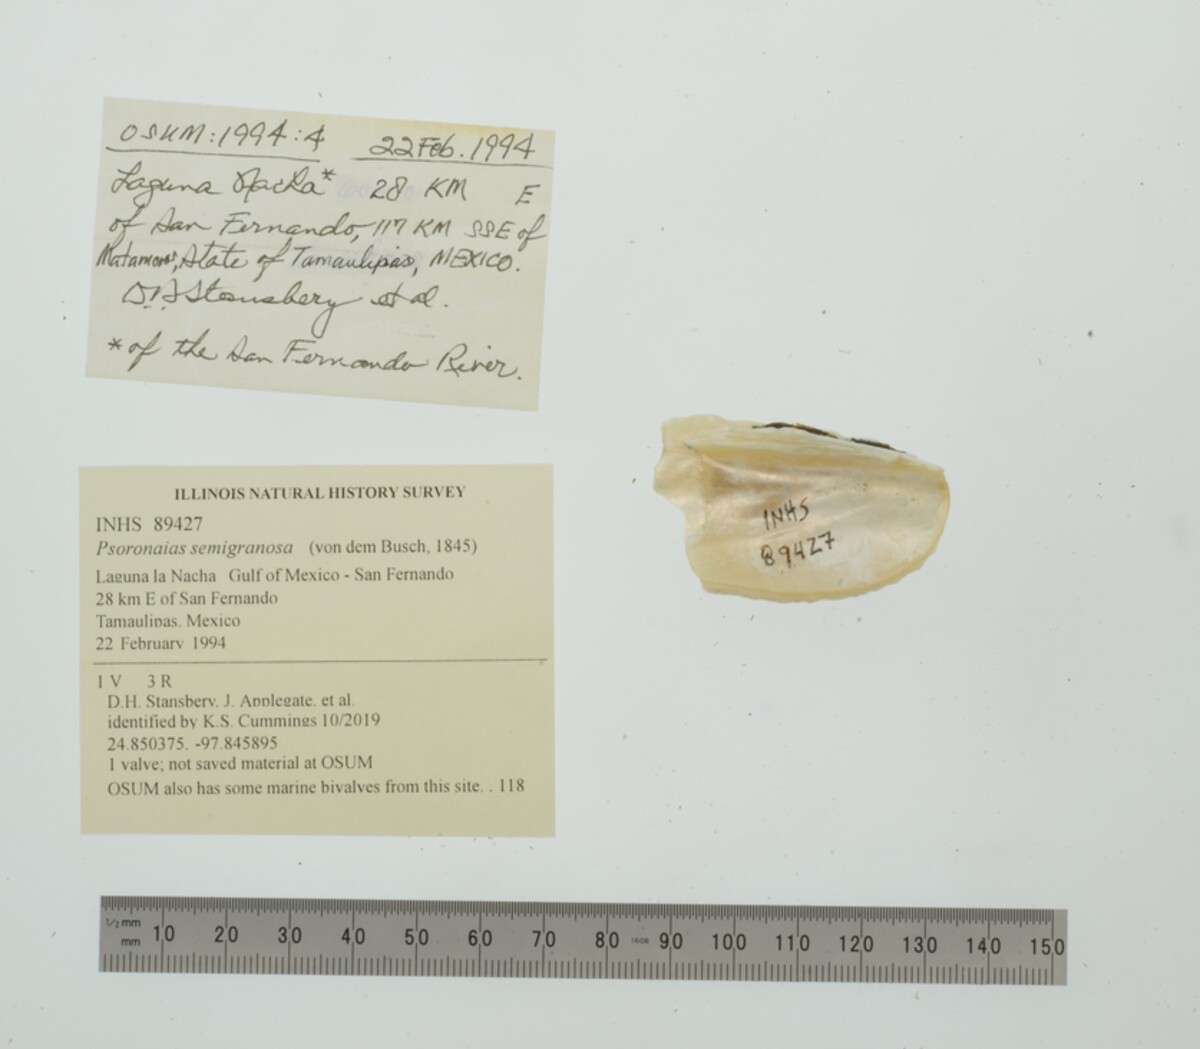 OSUM:1994:4 22 Feb. 1994
Laguna Nacha* 28 KM E
of San Fernando, 117 KM SSE of
Matamoros, State of Tamaulipas, MEXICO.
D.H. Stansbery et al.
* of the San Fernando River.
ILLINOIS NATURAL HISTORY SURVEY
INHS 89427
Psoronaias semigranosa (von dem Busch, 1845)
Laguna la Nacha Gulf of Mexico - San Fernando
28 km E of San Fernando
Tamaulipas, Mexico
22 February 1994
1 V 3 R
D.H. Stansbery, J. Applegate, et al.
identified by K.S. Cummings 10/2019
24.850375, -97.845895
1 valve; not saved material at OSUM
OSUM also has some marine bivalves from this site. . 118
INHS
89427
1/2 mm
mm 10 20 30 40 50 60 70 80 1608 90 100 110 120 130 140 150